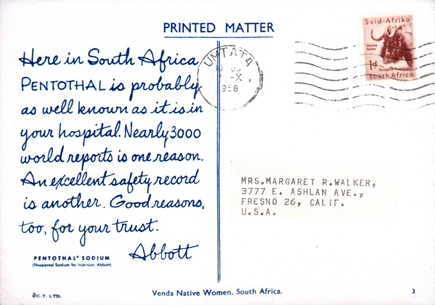 PRINTED MATTER
Here in South Africa
PENTOTHAL is probably
as well known as it is in
your hospital. Nearly 3000
world reports is one reason.
An excellent safety record
is another. Good reasons,
too, for your trust.
Abbott
PENTOTHAL® SODIUM
(Thiopental Sodium for Injection, Abbott)
J.C.T. LTD.
Venda Native Women, South Africa.
3
UMTATA
X
Suid-Afrika
1d
South Africa
MRS.MARGARET R.WALKER,
3777 E. ASHLAN AVE.,
FRESNO 26, CALIF.
U.S.A.